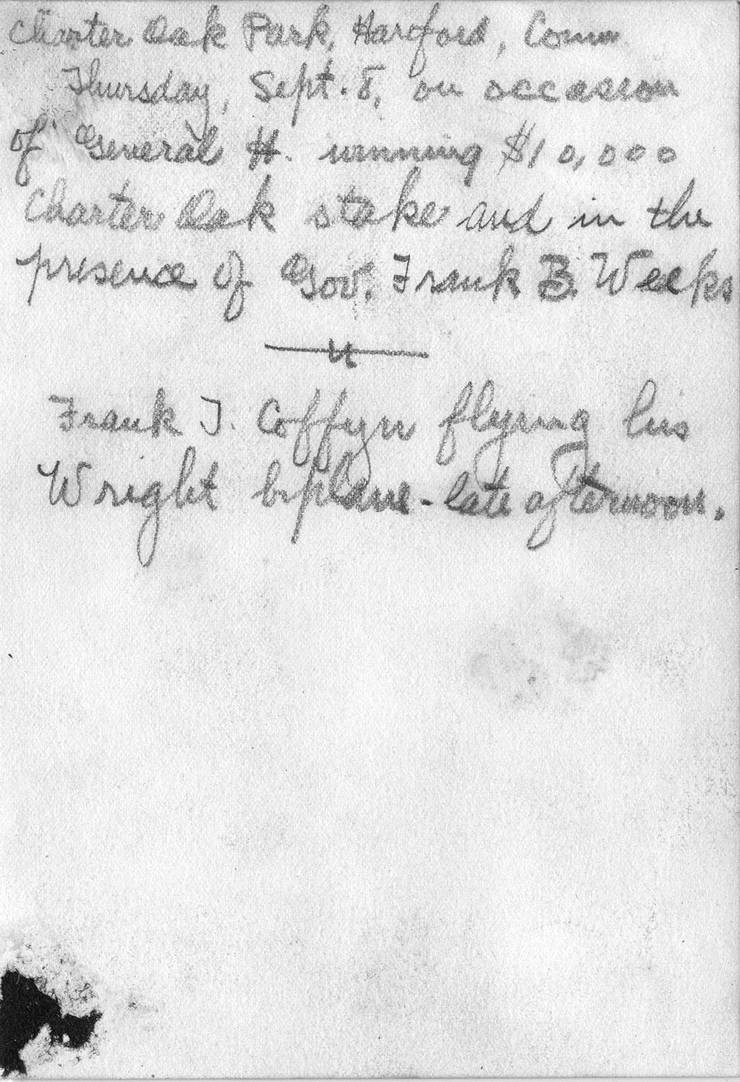 Charter Oak Park, Harford, Conn
Thursday, Sept. 8, on occasion
of General H. winning $10,000
Charter Oak stake and in the
presence of Gov. Frank B. Weeks
Frank T. Coffyn flying his
Wright biplane - late afternoon.